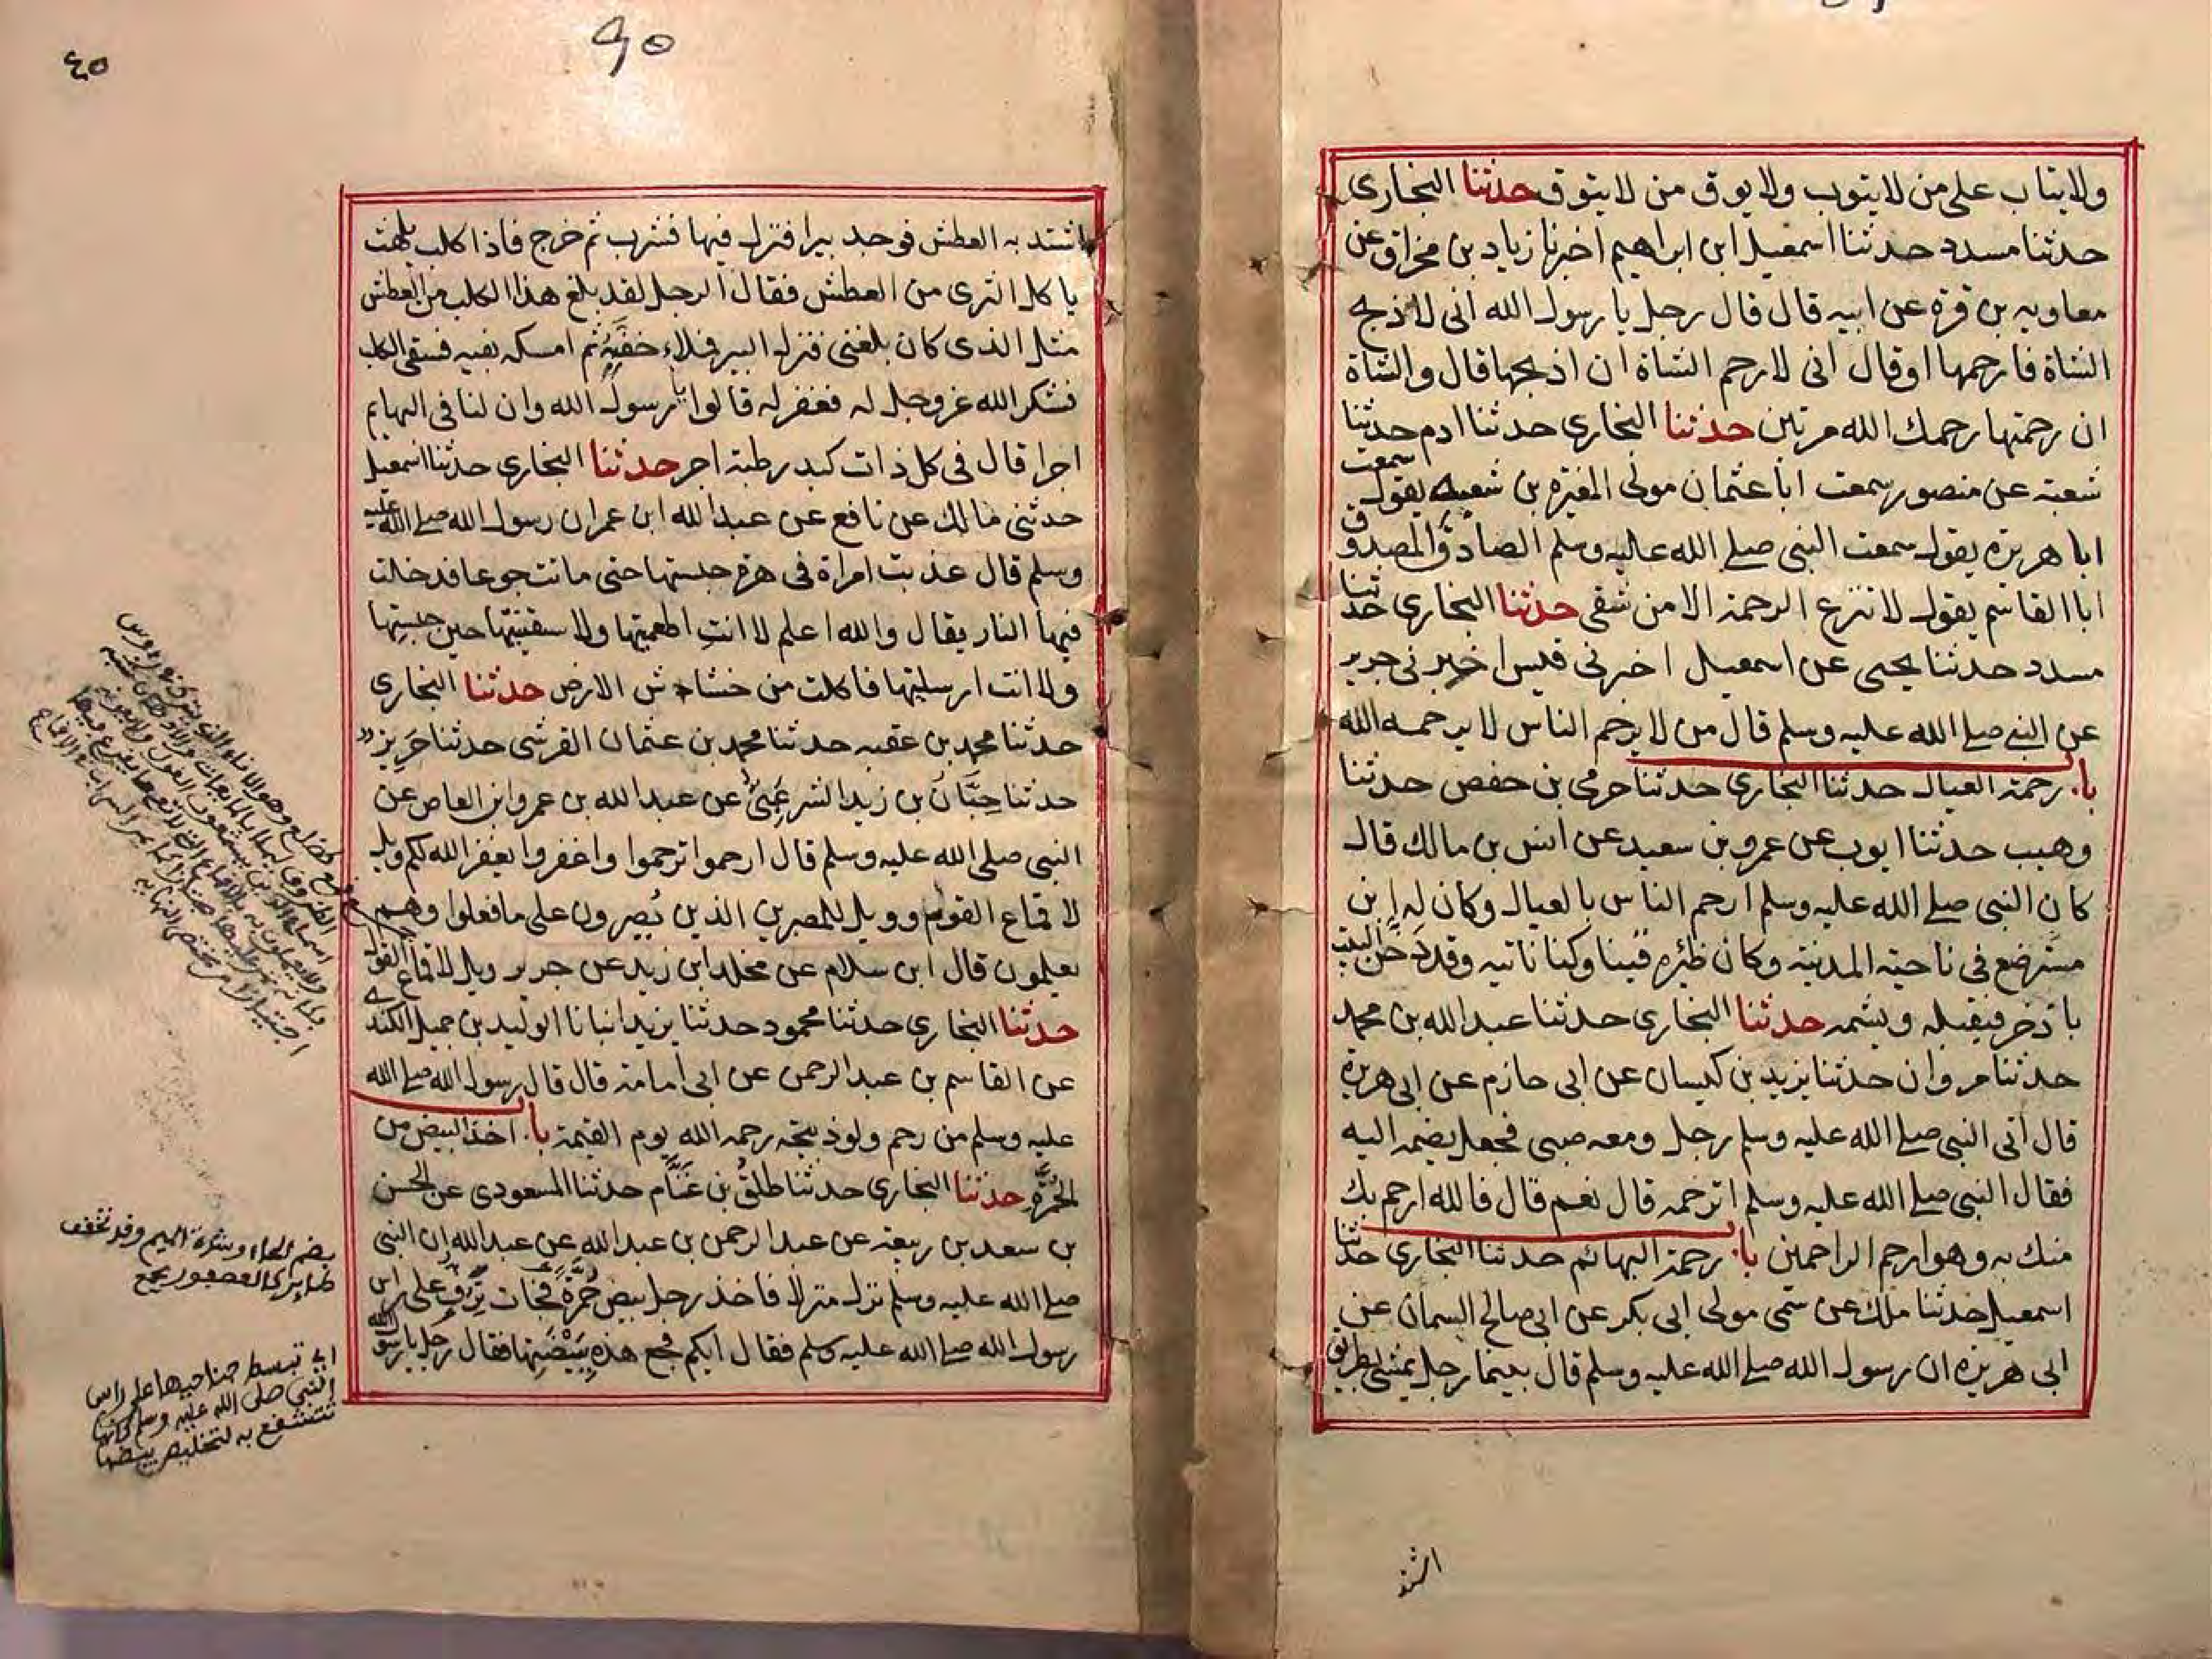 ولا يتاب على من لا يتوب ولا يوق من لا يتوق حدثنا البخارى
حدثنا مسدد حدثنا اسمعيل ابن ابراهيم اخبرنا زياد بن مخراق عن
معاويه بن قرة عن ابيه قال قال رجل يا رسول الله انى لاذبح
الشاة فارحمها او قال انى لارحم الشاة ان اذبحها قال والشاة
ان رحمتها رحمك الله مرتين حدثنا البخارى حدثنا ادم حدثنا
شعبة عن منصور سمعت ابا عثمان مولى المغيرة بن شعبة يقول سمعت
ابا هريرة يقول سمعت النبى صلى الله عليه وسلم الصادق المصدوق
ابا القاسم يقول لا تنزع الرحمة الا من شقى حدثنا البخارى حدثنا
مسدد حدثنا يحيى عن اسمعيل اخبرنى قيس اخبرنى جرير
عن النبى صلى الله عليه وسلم قال من لا يرحم الناس لا يرحمه الله
باب رحمة العيال حدثنا البخارى حدثنا حرمى بن حفص حدثنا
وهيب حدثنا ايوب عن عمرو بن سعيد عن انس بن مالك قال
كان النبى صلى الله عليه وسلم ارحم الناس بالعيال وكان له ابن
مسترضع فى ناحية المدينة وكان ظئره قينا وكنا ناتيه وقد دخن البيت
باذخر فيقبله ويشمه حدثنا البخارى حدثنا عبد الله بن محمد
حدثنا مروان حدثنا يزيد بن كيسان عن ابى حازم عن ابى هريرة
قال اتى النبى صلى الله عليه وسلم رجل ومعه صبى فجعل يضمه اليه
فقال النبى صلى الله عليه وسلم اترحمه قال نعم قال فالله ارحم بك
منك به وهو ارحم الراحمين باب رحمة البهائم حدثنا البخارى حدثنا
اسمعيل حدثنا ملك عن سمى مولى ابى بكر عن ابى صالح السمان عن
ابى هريرة ان رسول الله صلى الله عليه وسلم قال بينما رجل يمشى بطريق
اشتد
٩٥
٤٥
اشتد به العطش فوجد بيرا فنزل فيها فشرب ثم خرج فاذا كلب يلهث
ياكل الثرى من العطش فقال الرجل لقد بلغ هذا الكلب من العطش
مثل الذى كان بلغنى فنزل البير فملاء خفيه ثم امسكه بفيه فسقى الكلب
فشكر الله عز وجل له فغفر له قالوا يا رسول الله وان لنا فى البهايم
اجرا قال فى كل ذات كبد رطبة اجر حدثنا البخارى حدثنا اسمعيل
حدثنى مالك عن نافع عن عبد الله ابن عمر ان رسول الله صلى الله عليه
وسلم قال عذبت امراة فى هرة حبستها حتى ماتت جوعا فدخلت
فيها النار يقال والله اعلم لا انتِ اطعمتيها ولا سقيتيها حين حبستيها
ولا انت ارسلتيها فاكلت من خشاش الارض حدثنا البخارى
حدثنا محمد بن عقبه حدثنا محمد بن عثمان القرشى حدثنا حريز
حدثنا حِبَّان بن زيد الشرعبى عن عبد الله بن عمرو ابن العاص عن
النبى صلى الله عليه وسلم قال ارحموا ترحموا واغفروا يغفر الله لكم ويل
لاقماع القول وويل للمصرين الذين يُصرون على ما فعلوا وهم
يعلمون قال ابن سلام عن مخلد ابن زيد عن جرير ويل لاقماع القول
حدثنا البخارى حدثنا محمود حدثنا يزيد انبانا الوليد بن جميل الكندى
عن القاسم بن عبد الرحمن عن ابى امامة قال قال رسول الله صلى الله
عليه وسلم من رحم ولو ذبيحة رحمه الله يوم القيمة باب اخذ البيض من
الحُمَّرة حدثنا البخارى حدثنا طلق بن غَنَّام حدثنا المسعودى عن الحسن
بن سعد بن ربيعة عن عبد الرحمن بن عبد الله عن عبد الله ان النبى
صلى الله عليه وسلم نزل منزلا فاخذ رجل بيض حُمَّرة فجات ترف على راس
رسول الله صلى الله عليه وسلم فقال ايكم فجع هذه بِبَيْضَتِها فقال رجل يا رسول الله
بضم الحاء وشدة الميم وقد تخفف
طاير كالعصفور مجمع
اى تبسط جناحيها على راس
النبى صلى الله عليه وسلم كانها
تتشفع به لتخليص بيضها